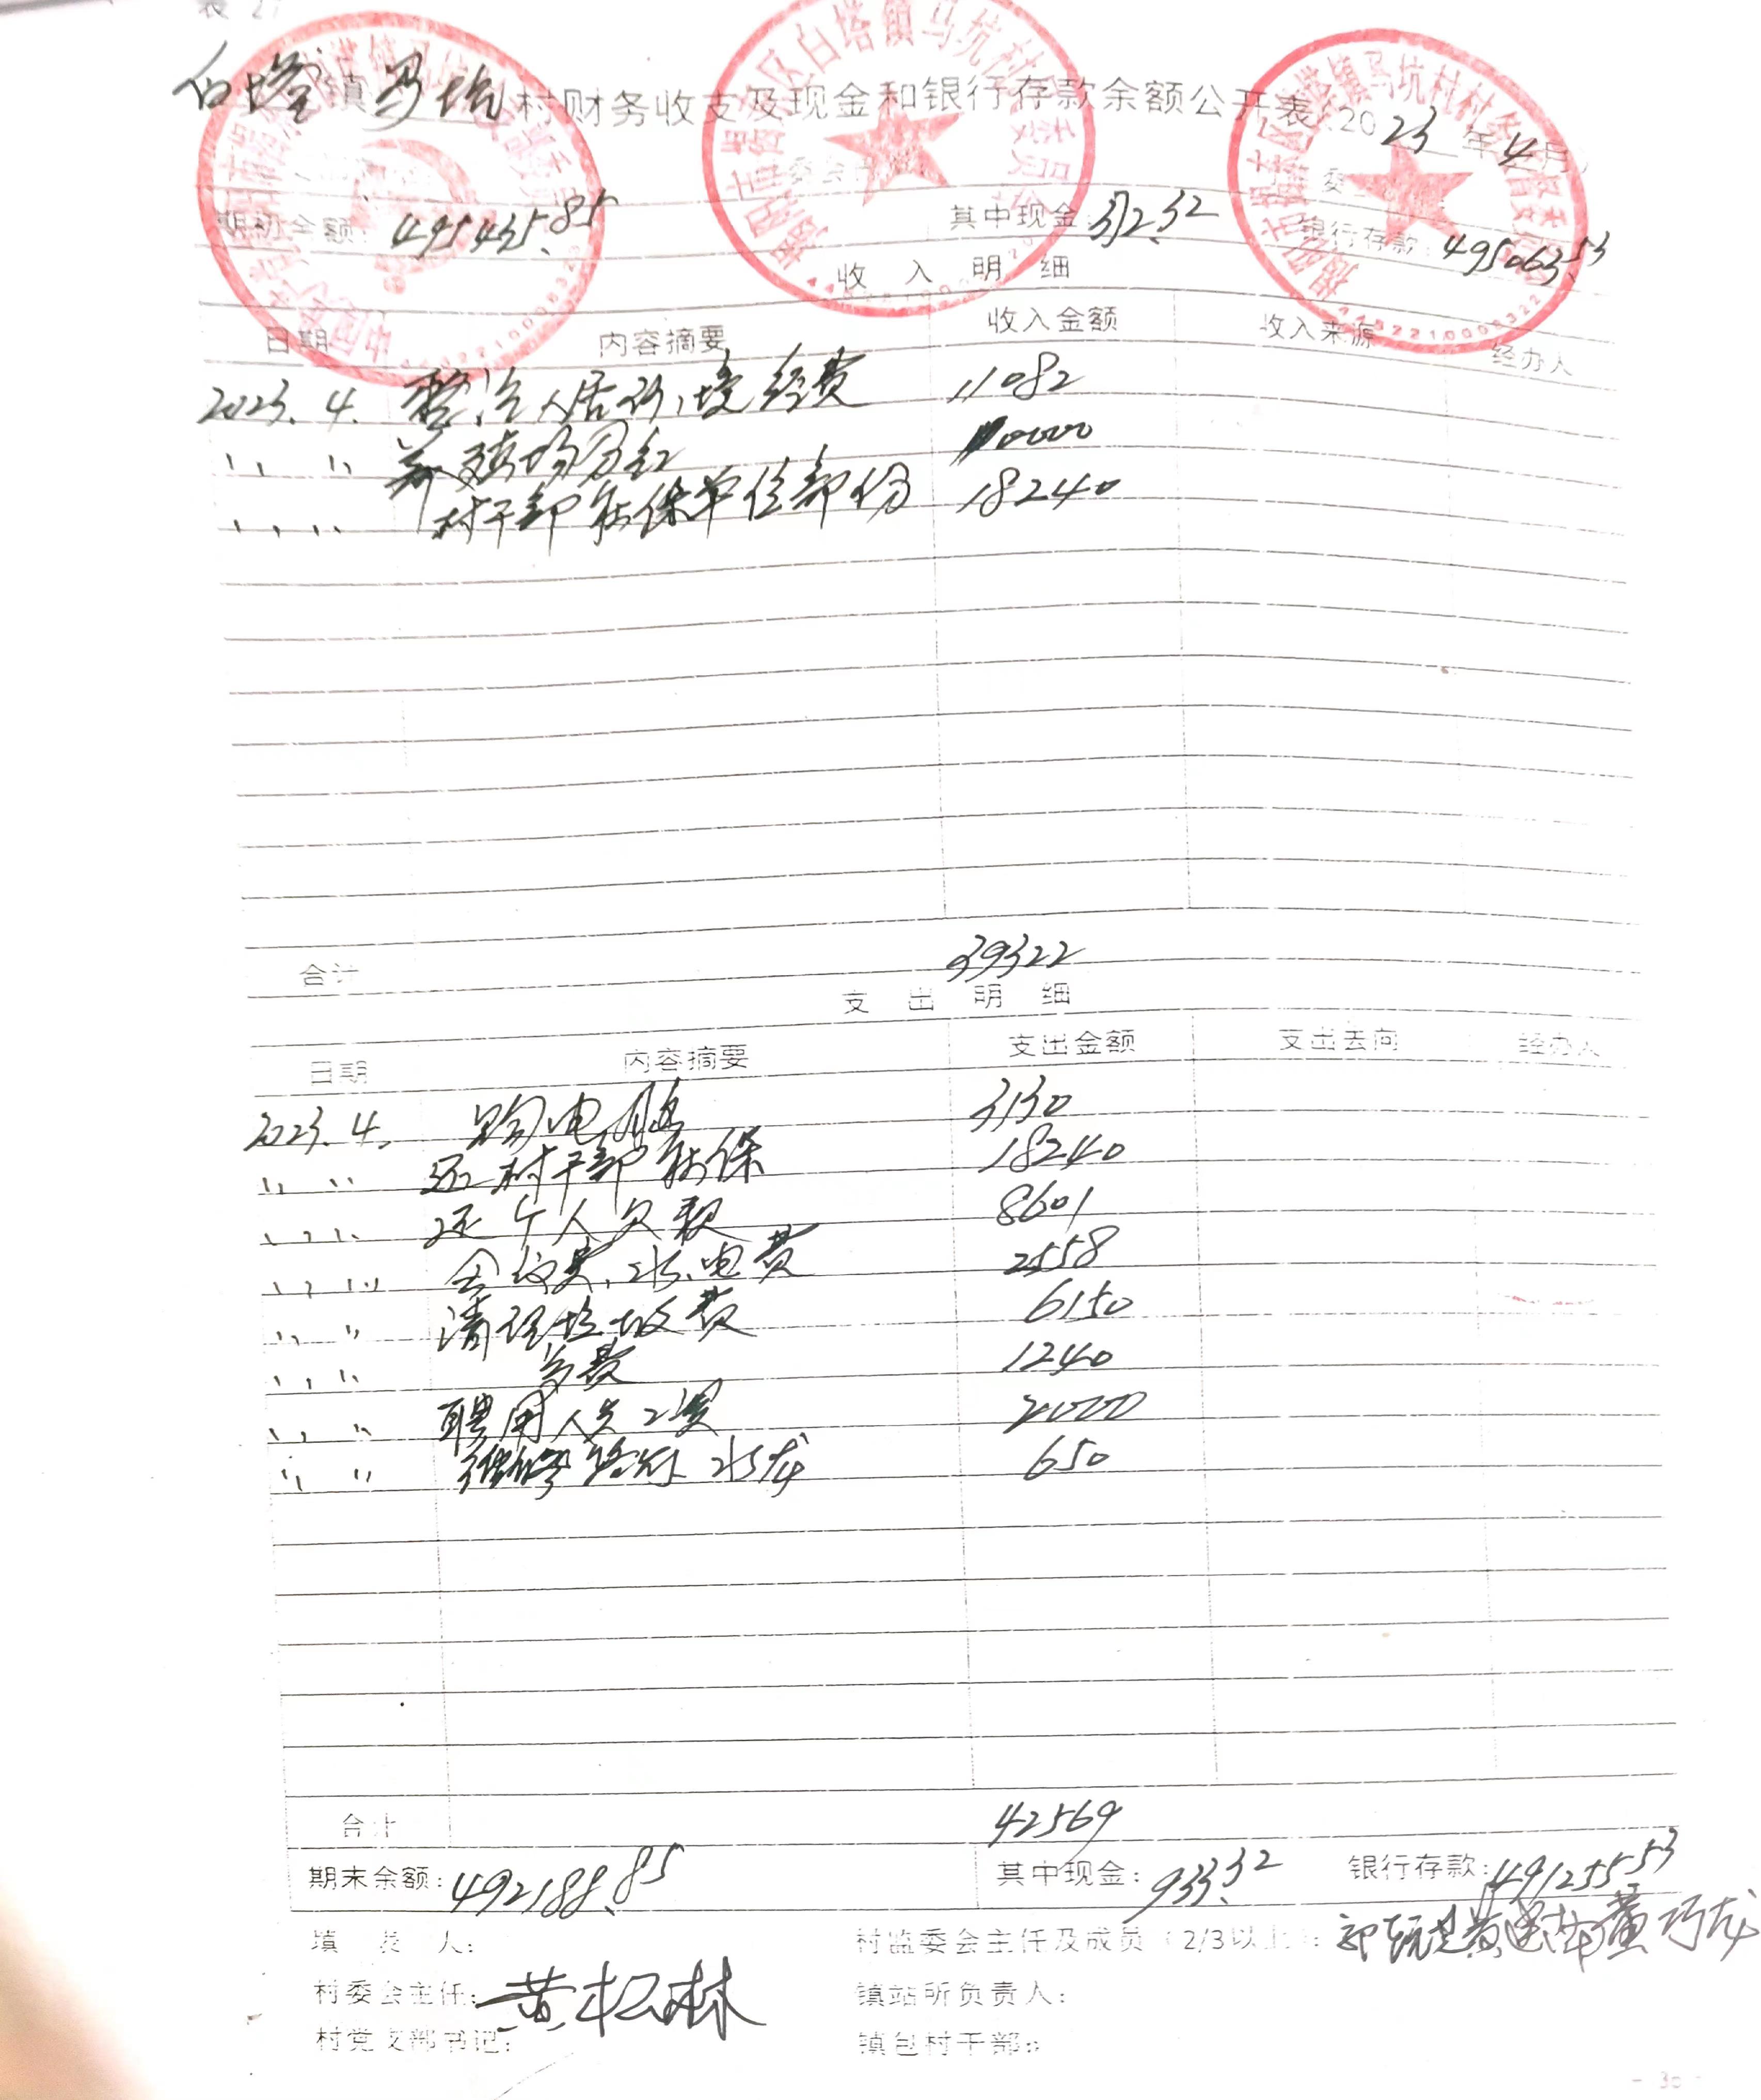 表 2
白塔镇马坑村财务收支及现金和银行存款余额公开表(2023年4月)
期初余额: 495435.85 其中现金: 372.32 银行存款: 495063.53
收 入 明 细
日期 内容摘要 收入金额 收入来源 经办人
2023.4. 整治人居环境经费 11082
〃 〃 养殖场分红 10000
〃 〃 村干部社保单位部份 18240
合计 39322
支 出 明 细
日期 内容摘要 支出金额 支出去向 经办人
2023.4. 购电脑 3130
〃 〃 还村干部社保 18240
〃 〃 还个人欠款 8601
〃 〃 会议费、水、电费 2558
〃 〃 清理垃圾费 6150
〃 〃 务费 1240
〃 〃 聘用人员工资 2000
〃 〃 维修路灯、水龙 650
合计 42569
期末余额: 492188.85 其中现金: 933.32 银行存款: 491255.53
填 表 人: 村监委会主任及成员(2/3以上): 黄巧龙
村委会主任: 黄松林 镇站所负责人:
村党支部书记: 镇包村干部: